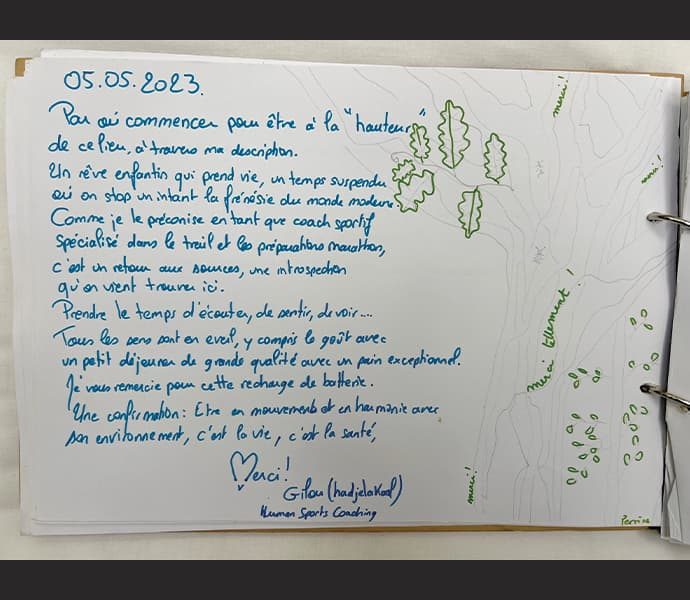 05.05.2023.
Par où commencer pour être à la "hauteur"
de ce lieu, à travers ma description.
Un rêve enfantin qui prend vie, un temps suspendu
où on stop un intant la frénésie du monde moderne.
Comme je le préconise en tant que coach sportif
spécialisé dans le trail et les préparations marathon,
c'est un retour aux sources, une introspection
qu'on vient trouver ici.
Prendre le temps d'écouter, de sentir, de voir....
Tous les sens sont en eveil, y compris le goût avec
un petit déjeuner de grande qualité avec un pain exceptionnel.
Je vous remercie pour cette recharge de batterie.
Une confirmation : Etre en mouvement et en harmonie avec
son environnement, c'est la vie, c'est la santé,
Merci!
Gilou (hadjelakool)
Human Sports Coaching
merci!
merci!
merci tellement!
merci!
Perrine